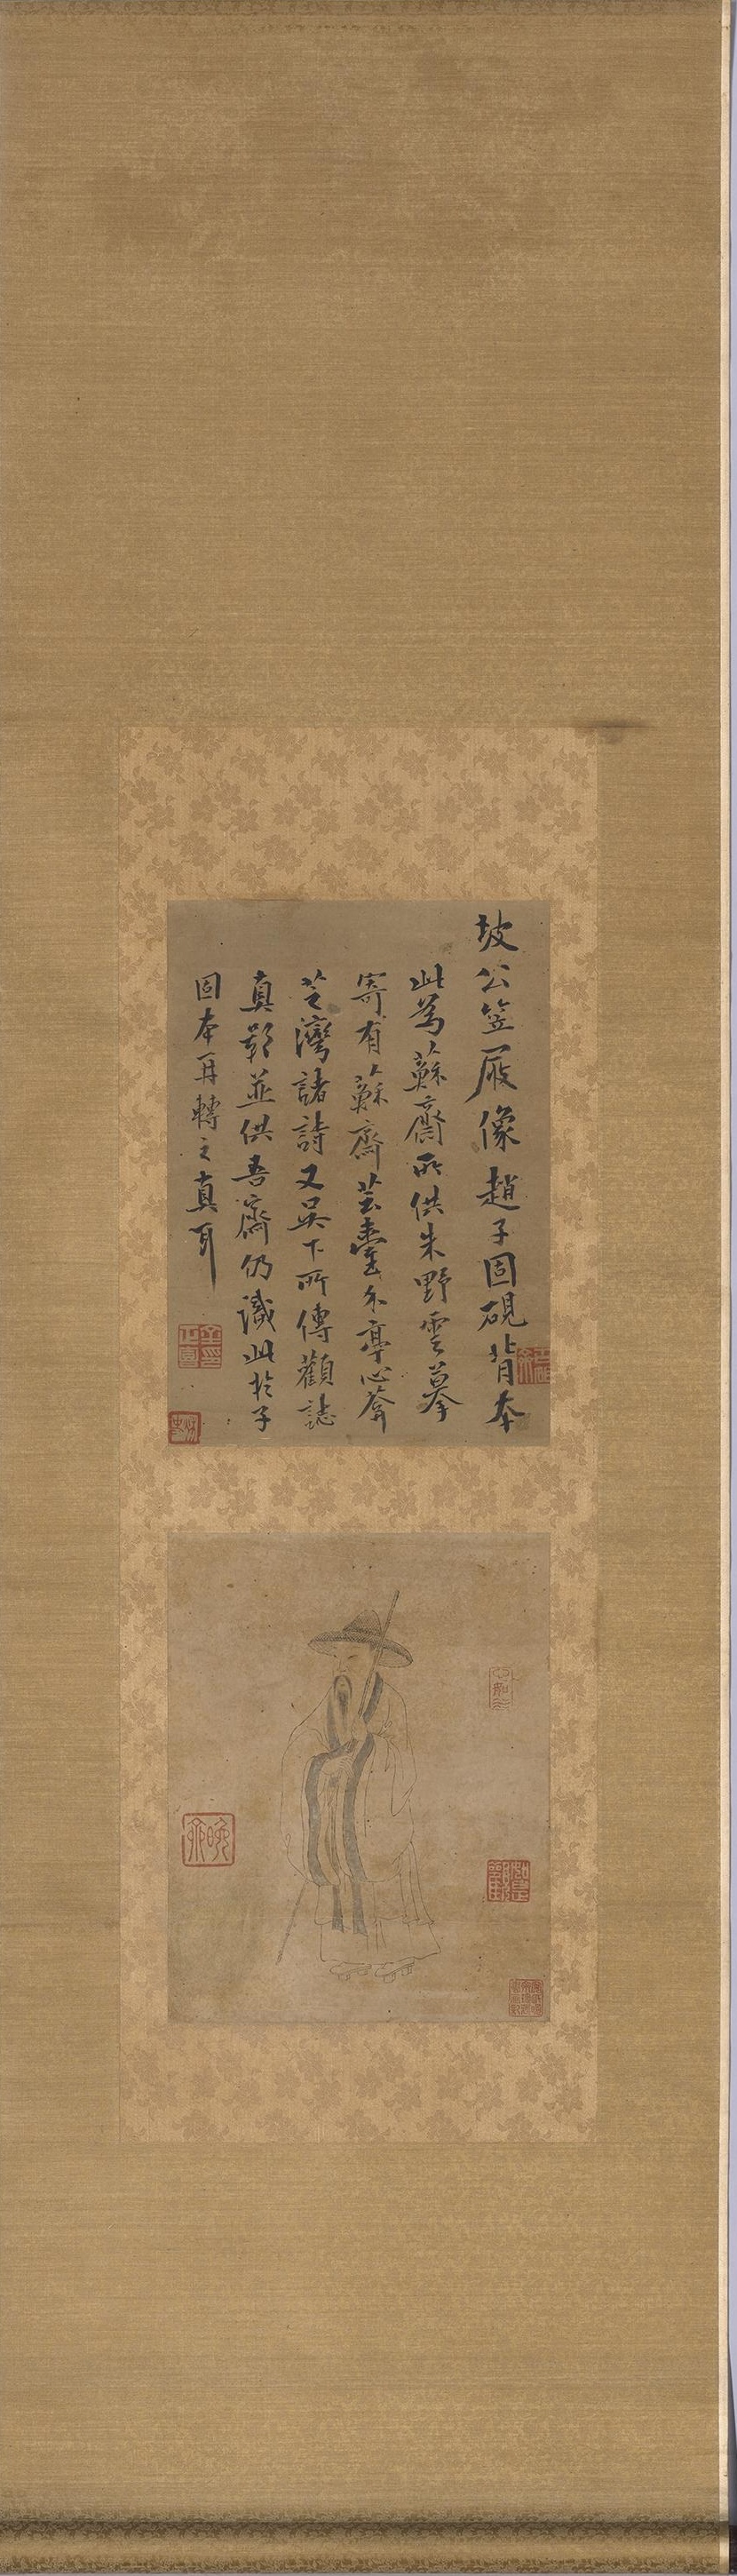 坡公笠屐像趙子固硯背本
此為蘇齋所供朱野雲摹
寄有蘇齋芸臺亦亭心葊
芝灣諸詩又吳下所傳顴誌
真影並供吾齋仍識此於子
固本再轉之真耳